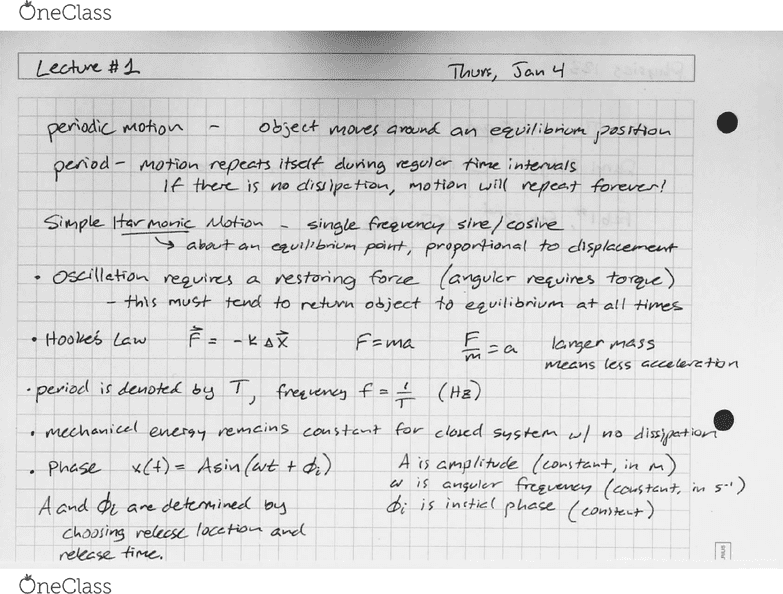 OneClass
Lecture #1 Thurs, Jan 4
periodic motion - object moves around an equilibrium position
period - motion repeats itself during regular time intervals
If there is no dissipation, motion will repeat forever!
Simple Harmonic Motion - single frequency sine/cosine
↳ about an equilibrium point, proportional to displacement
• Oscillation requires a restoring force (angular requires torque)
- this must tend to return object to equilibrium at all times
• Hooke's Law F⃗ = -k Δx⃗ F=ma F/m = a larger mass
means less acceleration
• period is denoted by T, frequency f = 1/T (Hz)
• mechanical energy remains constant for closed system w/ no dissipation
• Phase x(t) = A sin(ωt + ϕi) A is amplitude (constant, in m)
ω is angular frequency (constant, in s⁻¹)
A and ϕi are determined by ϕi is initial phase (constant)
choosing release location and
release time.
OneClass